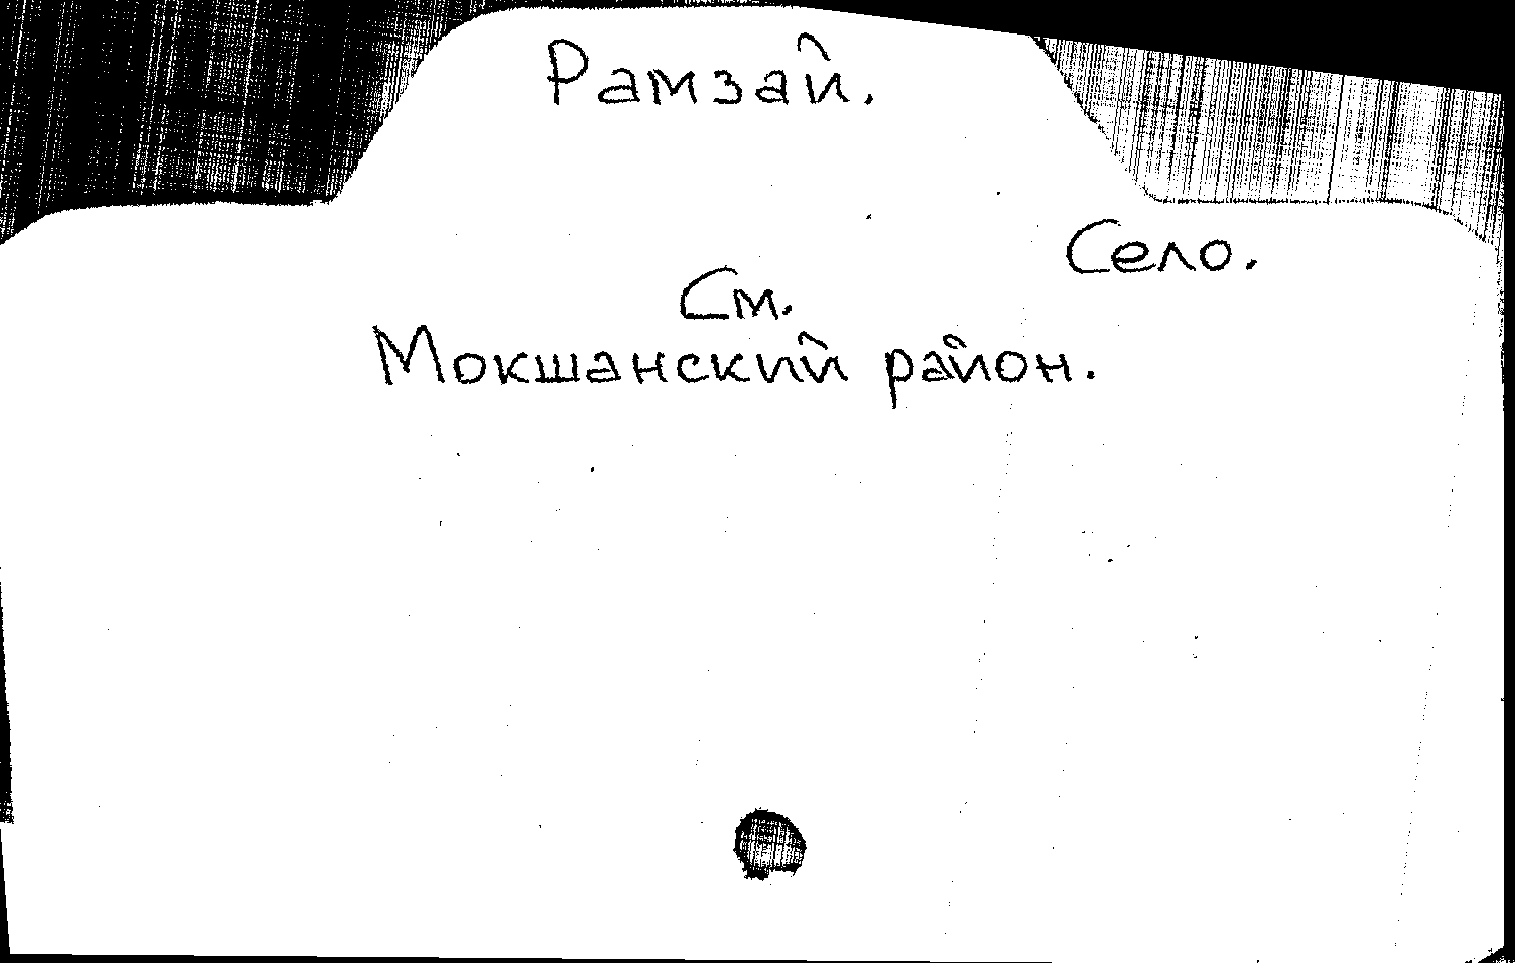 Рамзай.
Село.
См.
Мокшанский район.